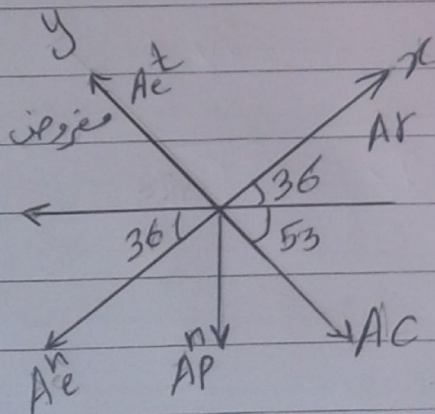 y
A e^t
x
مفروض
A r
36
36
53
A e^n
A p^n
A C